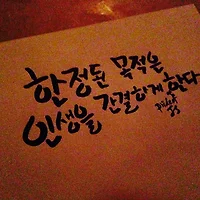 한정된 목적은
인생을 간결하게 한다